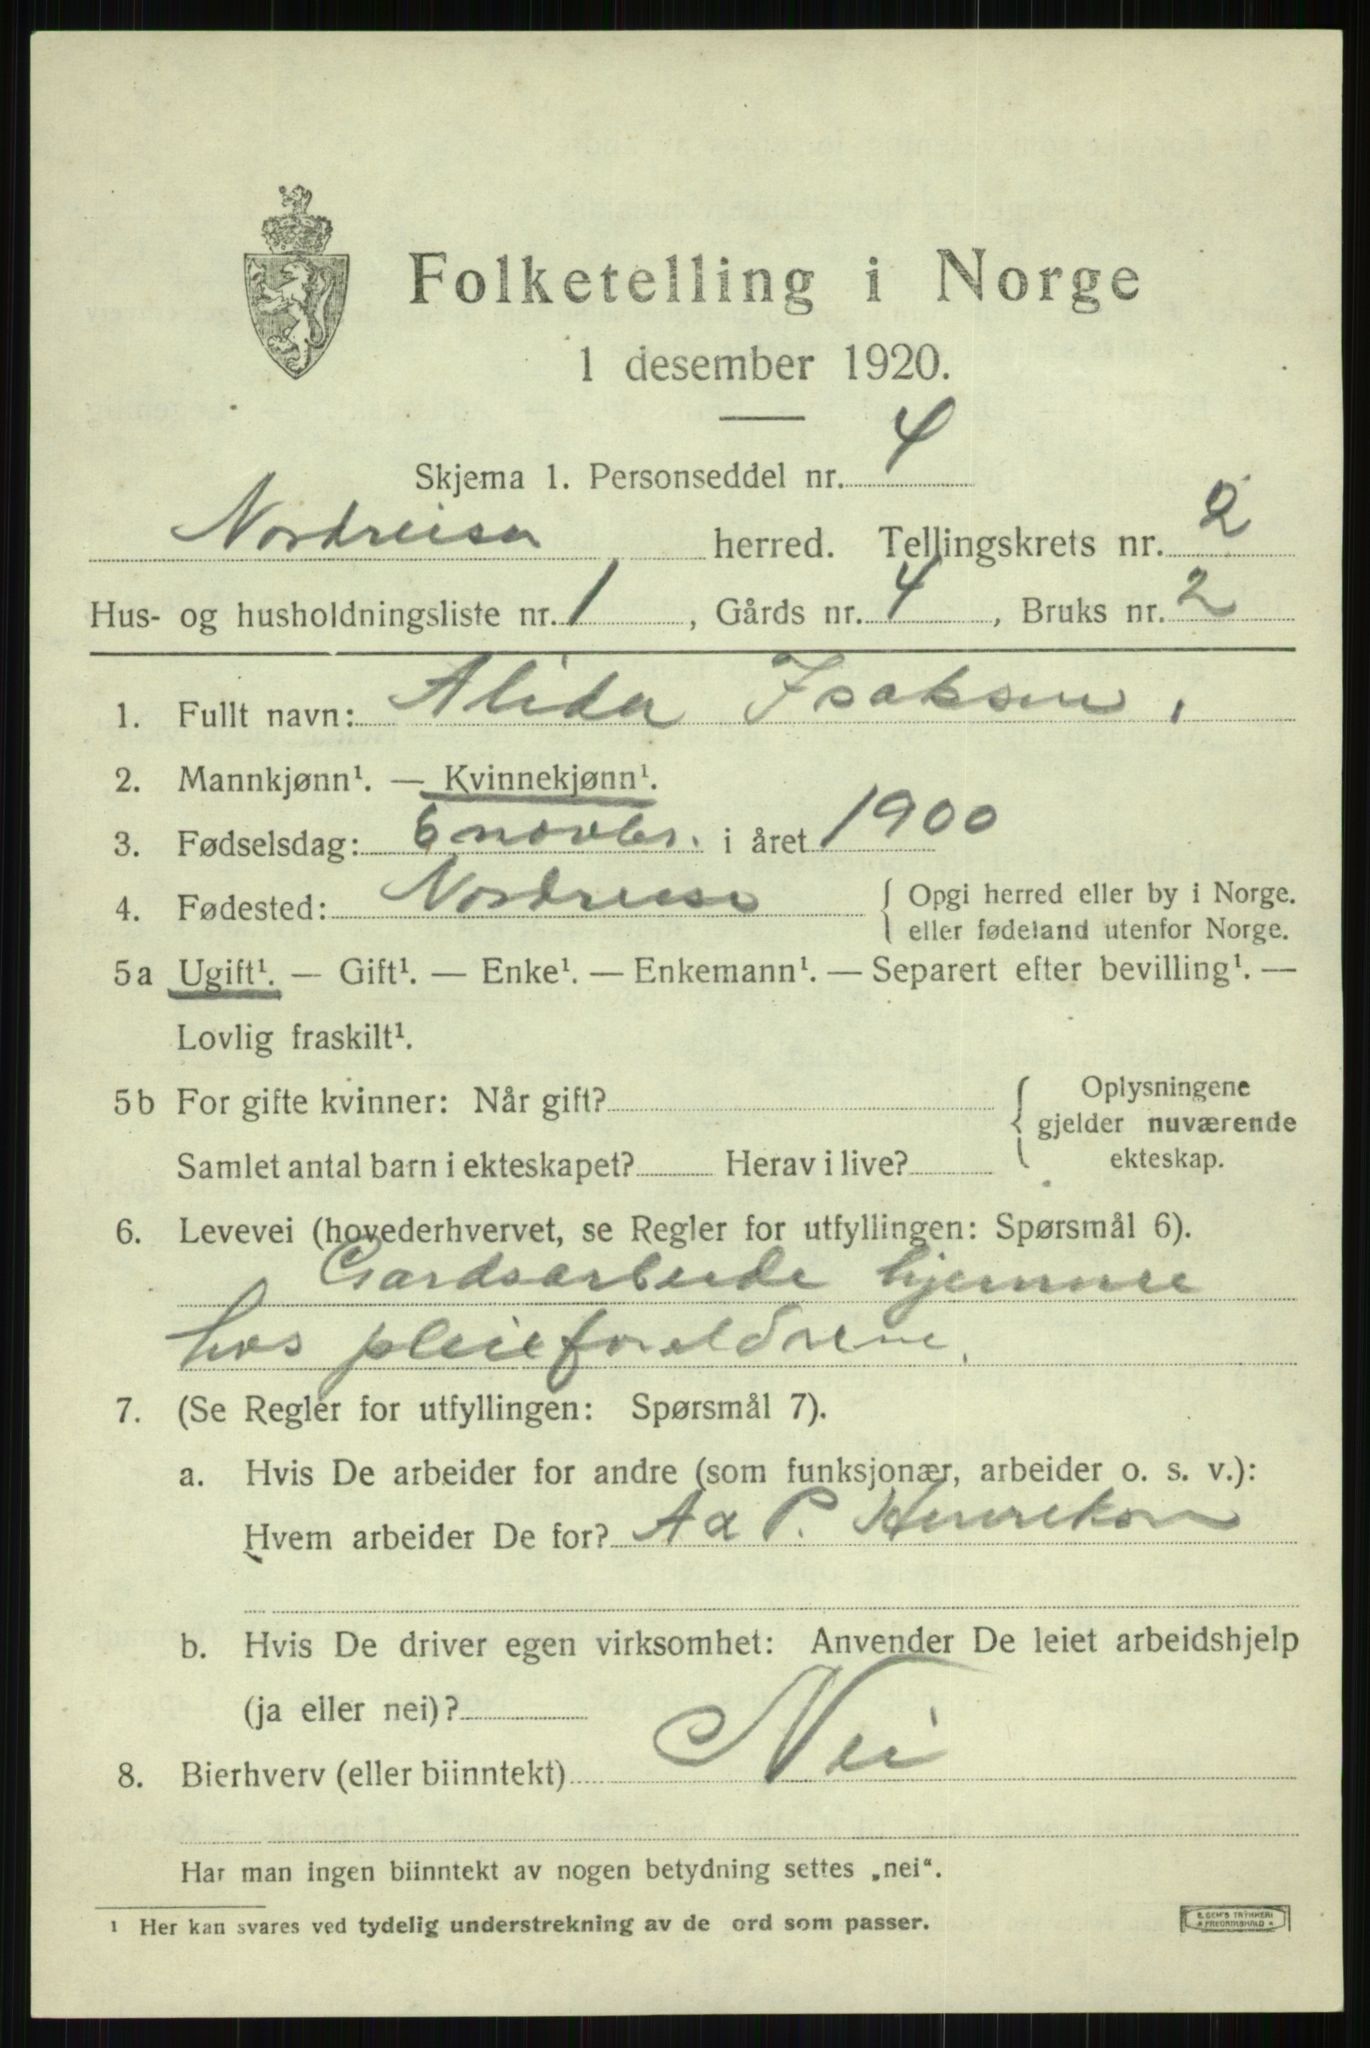 Folketelling i Norge
1 desember 1920.
Skjema 1. Personseddel nr. 4
Nordreisa herred. Tellingskrets nr. 2
Hus- og husholdningsliste nr. 1, Gårds nr. 4, Bruks nr. 2
1. Fullt navn: Alida Isaksen,
2. Mannkjønn¹. — Kvinnekjønn¹.
3. Fødselsdag: 6 novbr. i året 1900
4. Fødested: Nordreisa { Opgi herred eller by i Norge.
eller fødeland utenfor Norge.
5a Ugift¹. — Gift¹. — Enke¹. — Enkemann¹. — Separert efter bevilling¹. —
Lovlig fraskilt¹.
5b For gifte kvinner: Når gift? { Oplysningene
gjelder nuværende
Samlet antal barn i ekteskapet? Herav i live? ekteskap.
6. Levevei (hovederhvervet, se Regler for utfyllingen: Spørsmål 6).
Gardsarbeide hjemme
hos pleieforeldrene.
7. (Se Regler for utfyllingen: Spørsmål 7).
a. Hvis De arbeider for andre (som funksjonær, arbeider o. s. v.):
Hvem arbeider De for? Ad P. Henriksen
b. Hvis De driver egen virksomhet: Anvender De leiet arbeidshjelp
(ja eller nei)?
8. Bierhverv (eller biinntekt) Nei
Har man ingen biinntekt av nogen betydning settes „nei“.
¹ Her kan svares ved tydelig understrekning av de ord som passer.
E. SEM'S TRYKKERI
FREDRIKSHALD